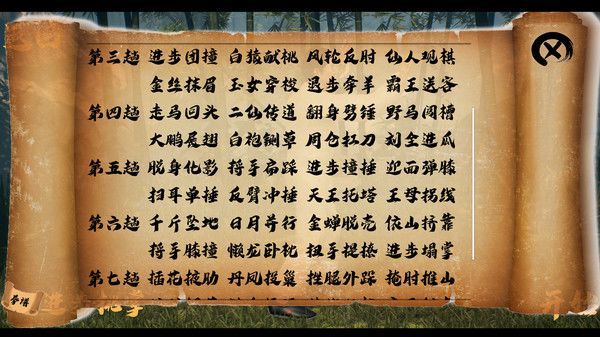 第三趟 进步团撞 白猿献桃 风轮反肘 仙人观棋
金丝抹眉 玉女穿梭 退步牵羊 霸王送客
第四趟 走马回头 二仙传道 翻身劈锤 野马闯槽
大鹏展翅 白袍铡草 周仓扛刀 刘全进瓜
第五趟 脱身化影 捋手扁踩 进步撞捶 迎面弹膝
扫耳单捶 反臂冲捶 天王托塔 王母拐线
第六趟 千斤坠地 日月并行 金蝉脱壳 依山挤靠
捋手膝撞 懒龙卧枕 扭手提捺 进步塌掌
第七趟 插花掩肋 丹凤投巢 挫腿外踩 掩肘推山
拳谱